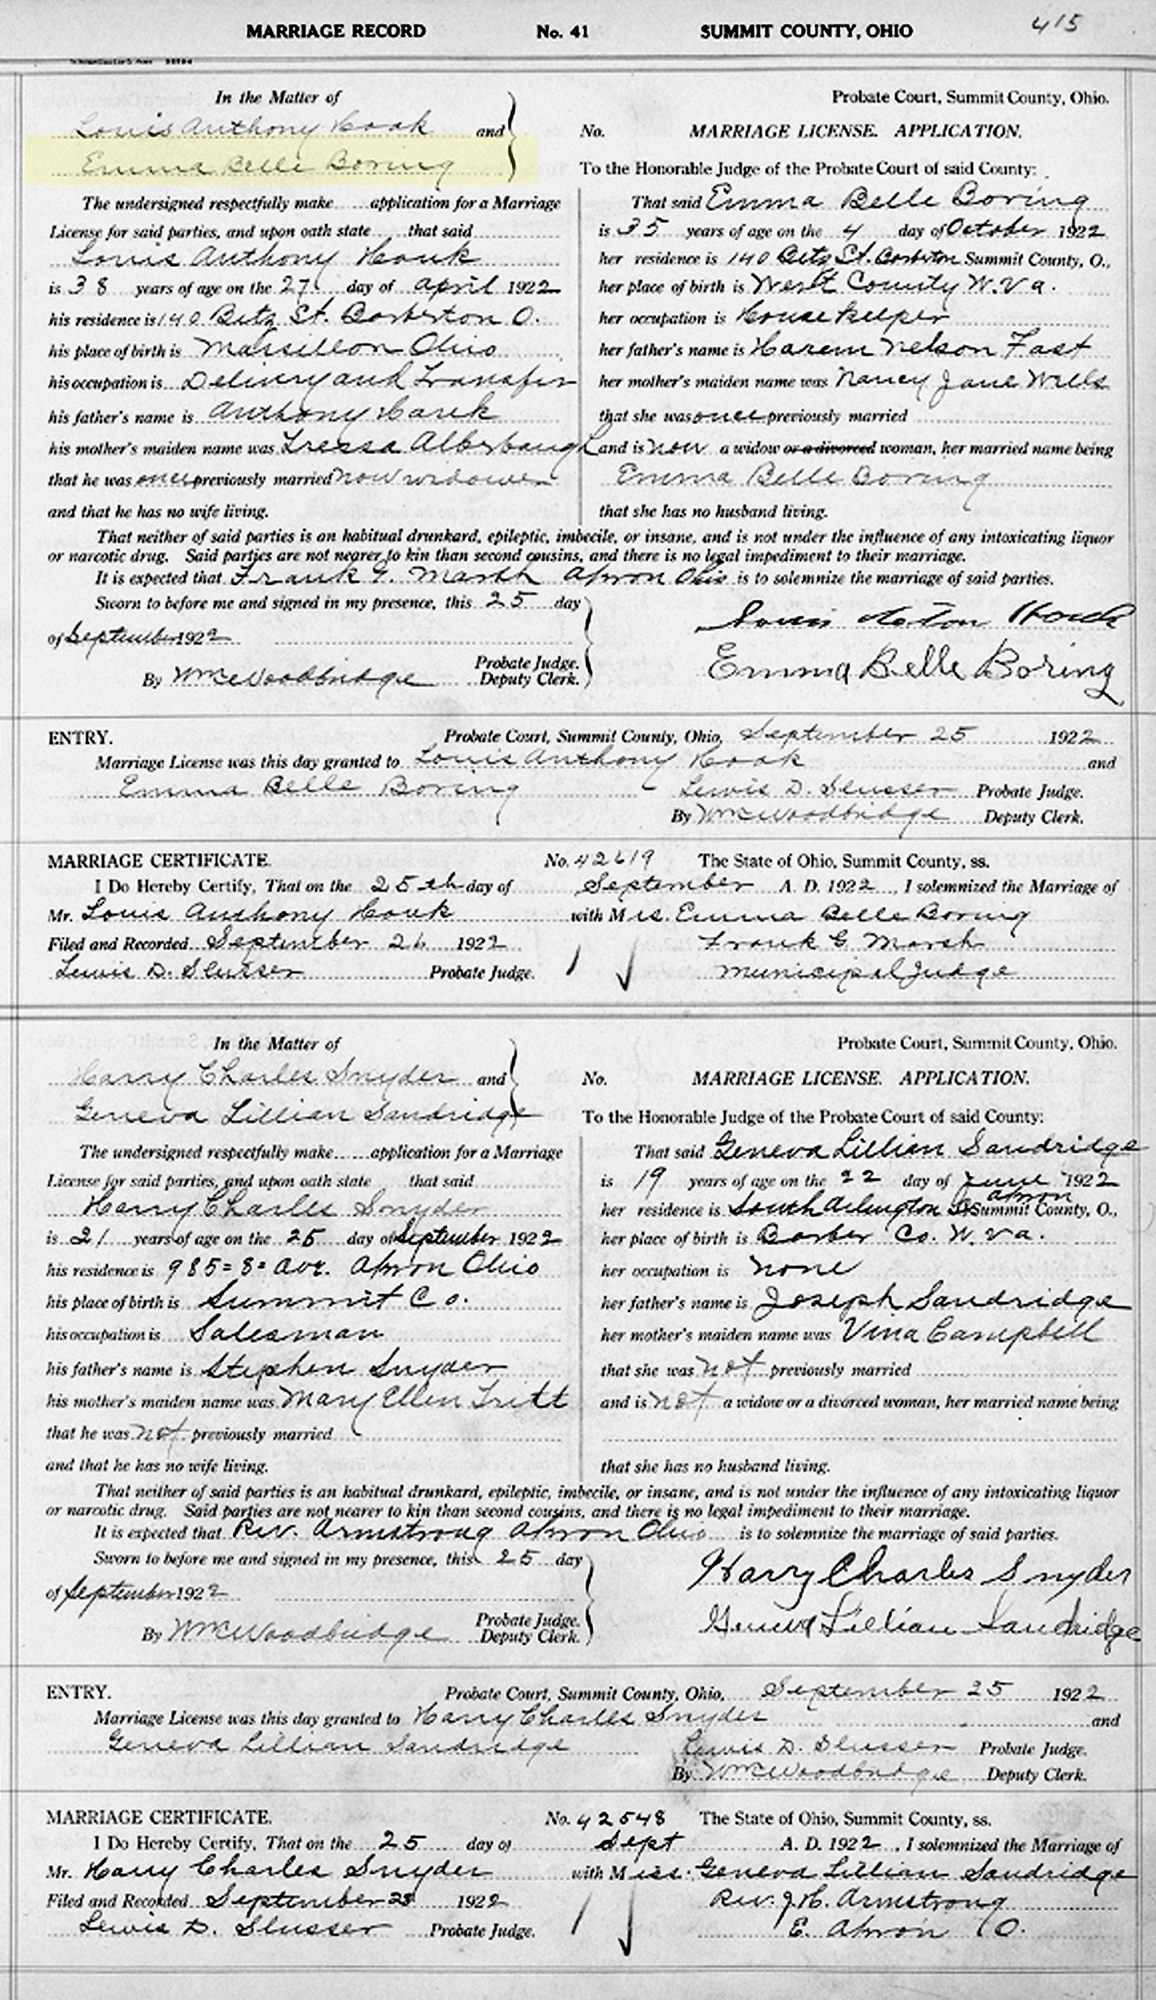 MARRIAGE RECORD No. 41 SUMMIT COUNTY, OHIO 415
In the Matter of
Louis Anthony Hook and
Emma Belle Boring
The undersigned respectfully make application for a Marriage
License for said parties, and upon oath state that said
Louis Anthony Houk
is 38 years of age on the 27 day of April 1922
his residence is 140 Betz St. Barberton O.
his place of birth is Massillon Ohio
his occupation is Delivery and Transfer
his father's name is Anthony Houk
his mother's maiden name was Tressa Alberbaugh
that he was once previously married now widower
and that he has no wife living.
Probate Court, Summit County, Ohio.
No. MARRIAGE LICENSE. APPLICATION.
To the Honorable Judge of the Probate Court of said County:
That said Emma Belle Boring
is 35 years of age on the 4 day of October 1922
her residence is 140 Betz St. Barberton Summit County, O.,
her place of birth is West County W. Va.
her occupation is Housekeeper
her father's name is Harem Nelson Fast
her mother's maiden name was Nancy Jane Wells
that she was once previously married
and is now a widow or a divorced woman, her married name being
Emma Belle Boring
that she has no husband living.
That neither of said parties is an habitual drunkard, epileptic, imbecile, or insane, and is not under the influence of any intoxicating liquor
or narcotic drug. Said parties are not nearer to kin than second cousins, and there is no legal impediment to their marriage.
It is expected that Frank G. Marsh Akron Ohio is to solemnize the marriage of said parties.
Sworn to before me and signed in my presence, this 25 day
of September 1922
Probate Judge.
By Wm C Woodbridge Deputy Clerk.
Louis Houck
Emma Belle Boring
ENTRY. Probate Court, Summit County, Ohio, September 25 1922
Marriage License was this day granted to Louis Anthony Hook and
Emma Belle Boring Lewis D. Slusser Probate Judge.
By Wm C Woodbridge Deputy Clerk.
MARRIAGE CERTIFICATE. No. 42619 The State of Ohio, Summit County, ss.
I Do Hereby Certify, That on the 25th day of September A. D. 1922, I solemnized the Marriage of
Mr. Louis Anthony Houk with Mrs. Emma Belle Boring
Filed and Recorded September 26 1922 Frank G. Marsh
Lewis D. Slusser Probate Judge. Municipal Judge
In the Matter of
Harry Charles Snyder and
Geneva Lillian Sandridge
The undersigned respectfully make application for a Marriage
License for said parties, and upon oath state that said
Harry Charles Snyder
is 21 years of age on the 25 day of September 1922
his residence is 985=8= Ave. Akron Ohio
his place of birth is Summit Co.
his occupation is Salesman
his father's name is Stephen Snyder
his mother's maiden name was Mary Ellen Tritt
that he was not previously married
and that he has no wife living.
Probate Court, Summit County, Ohio.
No. MARRIAGE LICENSE. APPLICATION.
To the Honorable Judge of the Probate Court of said County:
That said Geneva Lillian Sandridge
is 19 years of age on the 22 day of June 1922
Akron
her residence is South Arlington St. Summit County, O.,
her place of birth is Barber Co. W. Va.
her occupation is none
her father's name is Joseph Sandridge
her mother's maiden name was Vina Campbell
that she was not previously married
and is not a widow or a divorced woman, her married name being
that she has no husband living.
That neither of said parties is an habitual drunkard, epileptic, imbecile, or insane, and is not under the influence of any intoxicating liquor
or narcotic drug. Said parties are not nearer to kin than second cousins, and there is no legal impediment to their marriage.
It is expected that Rev. Armstrong Akron Ohio is to solemnize the marriage of said parties.
Sworn to before me and signed in my presence, this 25 day
of September 1922
Probate Judge.
By Wm C Woodbridge Deputy Clerk.
Harry Charles Snyder
Geneva Lillian Sandridge
ENTRY. Probate Court, Summit County, Ohio, September 25 1922
Marriage License was this day granted to Harry Charles Snyder and
Geneva Lillian Sandridge Lewis D. Slusser Probate Judge.
By Wm C Woodbridge Deputy Clerk.
MARRIAGE CERTIFICATE. No. 42548 The State of Ohio, Summit County, ss.
I Do Hereby Certify, That on the 25 day of Sept A. D. 1922, I solemnized the Marriage of
Mr. Harry Charles Snyder with Miss. Geneva Lillian Sandridge
Filed and Recorded September 25 1922 Rev. J. H. Armstrong
Lewis D. Slusser Probate Judge. E. Akron O.